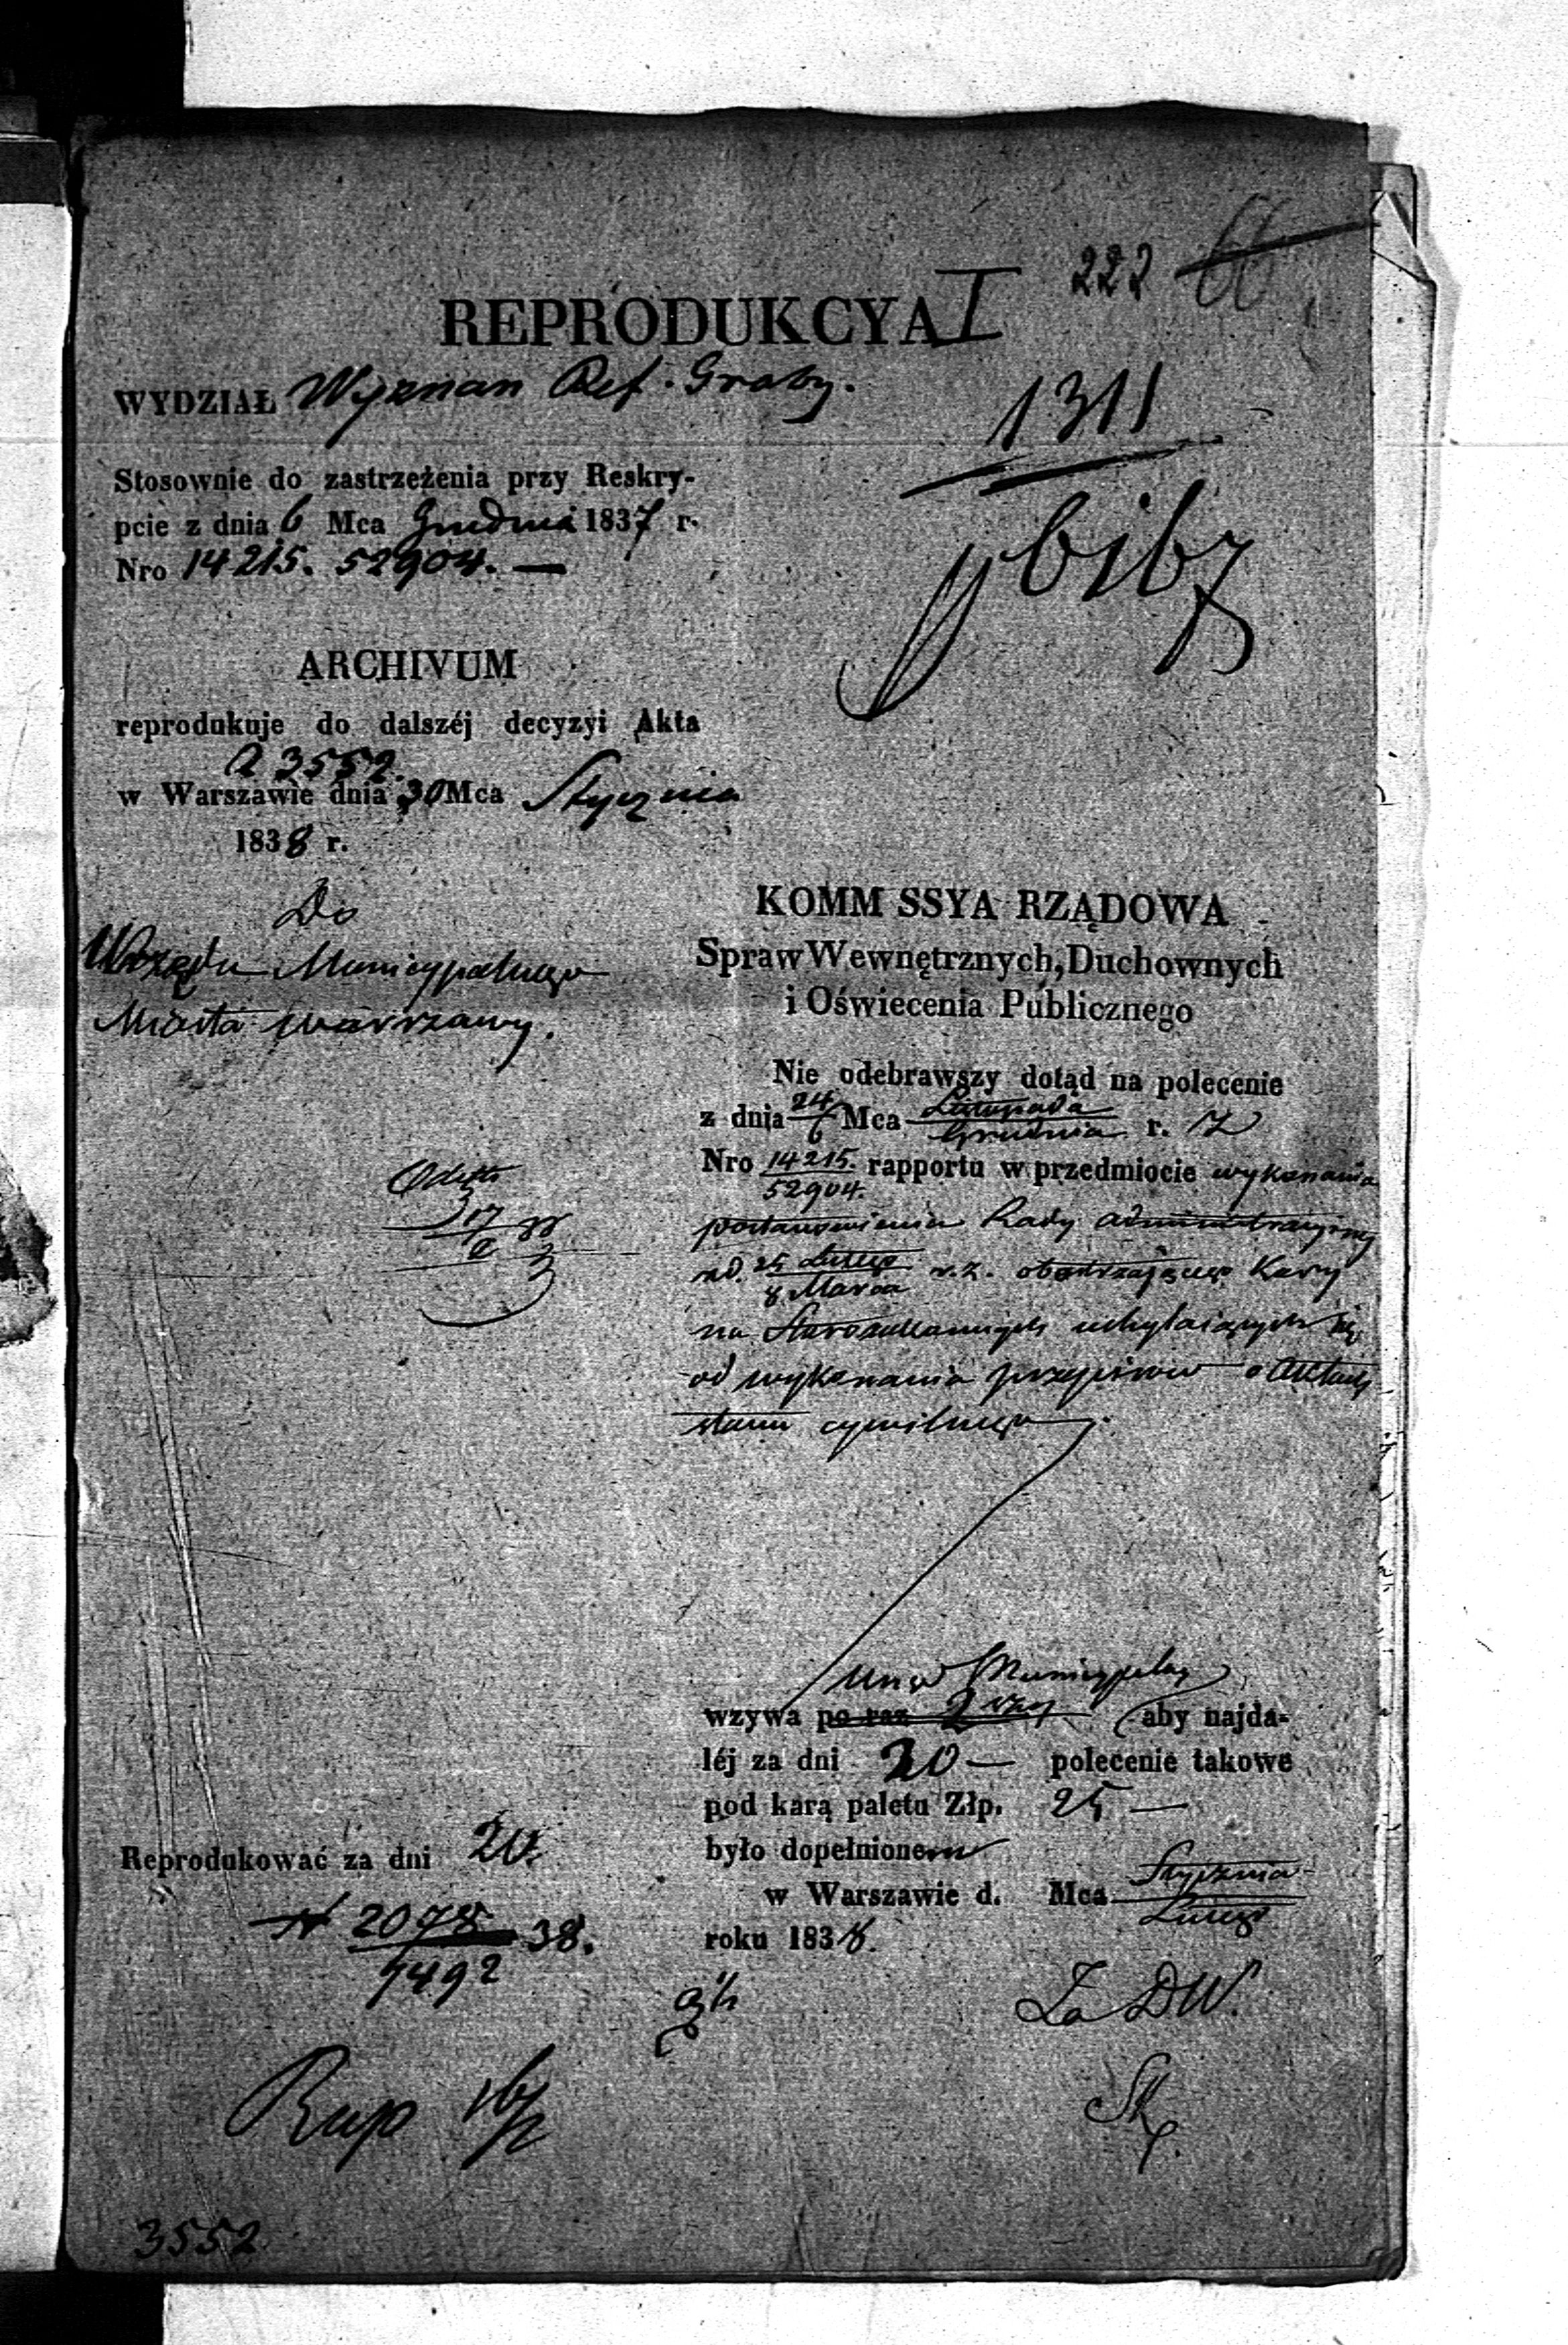 222
REPRODUKCYA I
WYDZIAŁ Wyznan Ref. Graby.
1311
Stosownie do zastrzeżenia przy Reskry-
pcie z dnia 6 Mca Grudnia 1837 r.
Nro 14215. 52904. —
ARCHIVUM
reprodukuje do dalszéj decyzyi Akta
a 3552.
w Warszawie dnia 30 Mca Stycznia
1838 r.
Do
Urzędu Municypalnego
Miasta Warszawy.
KOMM SSYA RZĄDOWA
Spraw Wewnętrznych, Duchownych
i Oświecenia Publicznego
Nie odebrawszy dotąd na polecenie
z dnia 24/6 Mca Listopada/Grudnia r. z
Nro 14215./52904. rapportu w przedmiocie wykonania
postanowienia Rady Administracyjnej
z d. 24 Lutego/8 Marca r. z. obostrzającego Kary
na Starozakonnych uchylaiących się
od wykonania przepisow o Aktach
stanu cywilnego
Urząd Municypalny
wzywa po raz 2 aby najda-
léj za dni 20 — polecenie takowe
pod karą paletu Złp. 25 —
było dopełnionem
w Warszawie d. Mca Stycznia/Lutego
roku 1838.
Reprodukować za dni 20.
N 2078/7492 38.
Za DW.
Rup
3552